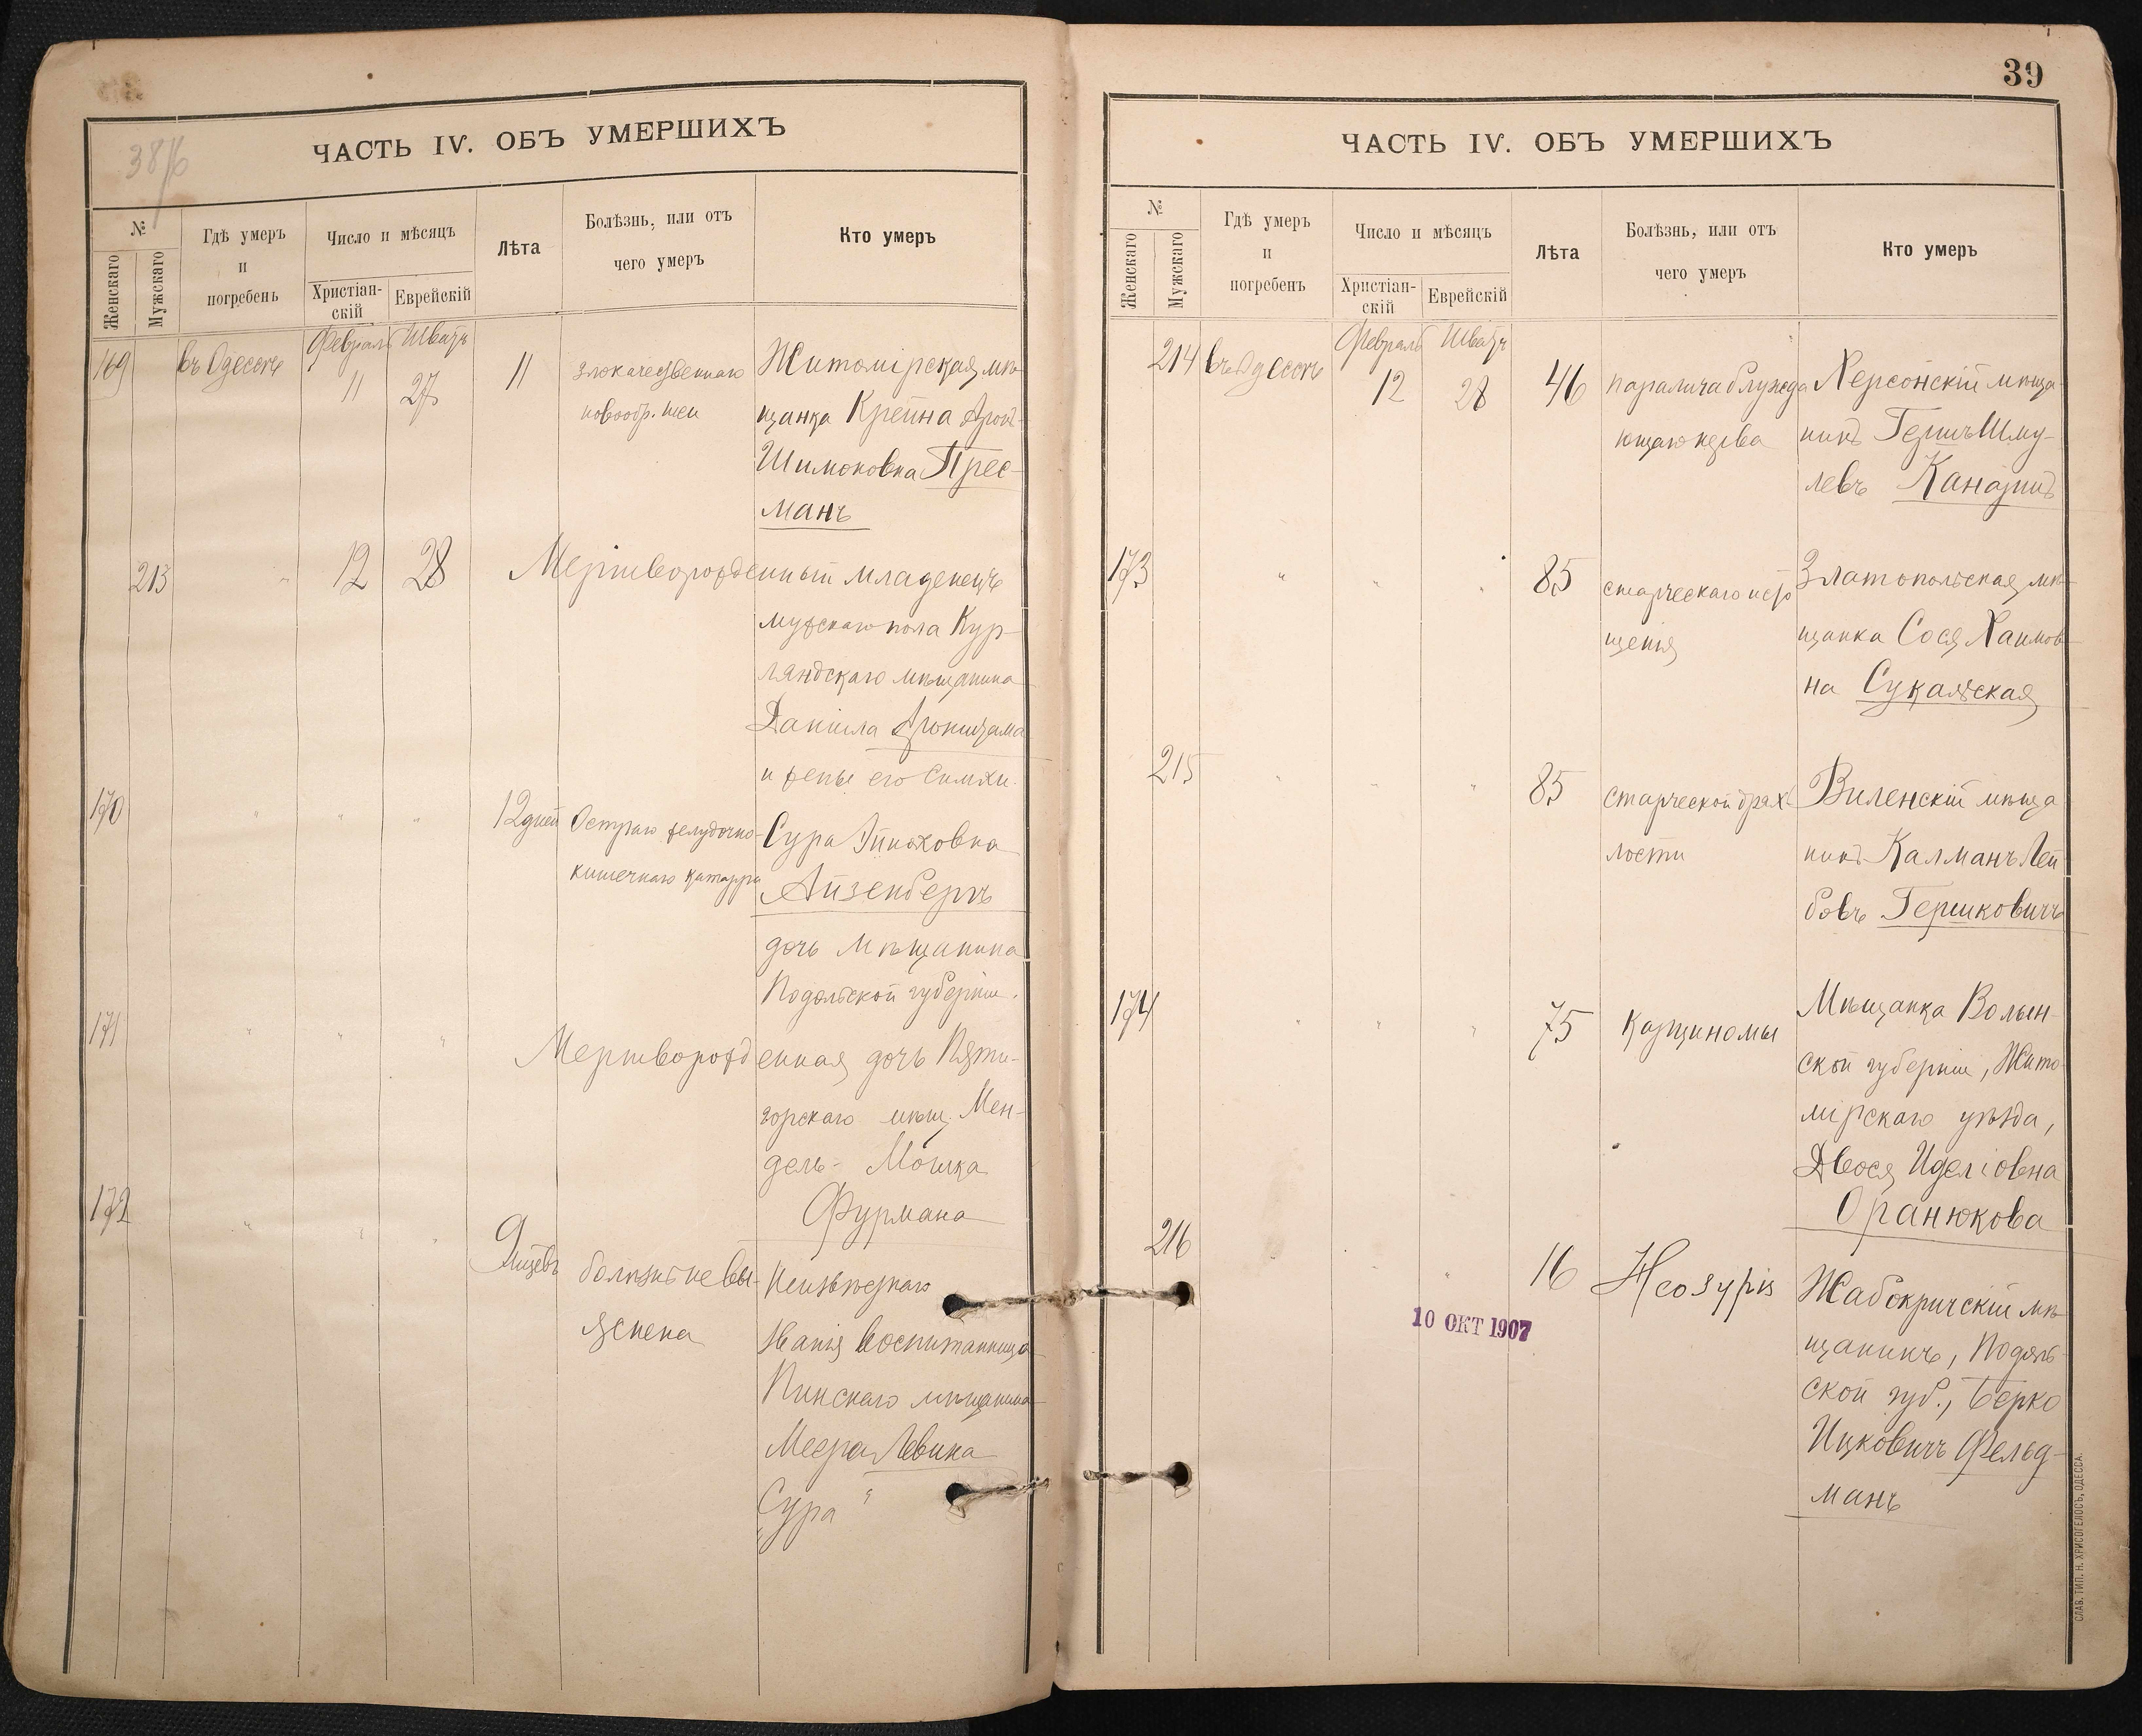 38/б
ЧАСТЬ IV. ОБЪ УМЕРШИХЪ
№
Женскаго
Мужскаго
Гдѣ умеръ
и
погребенъ
Число и мѣсяцъ
Христіан-
скій
Еврейскій
Лѣта
Болѣзнь, или отъ
чего умеръ
Кто умеръ
169
въ Одессѣ
Февраль
11
Шватъ
27
11
злокачественнаго
новообр. шеи
Житомірская мѣ-
щанка Крейна Арон-
Шимоновна Прес-
манъ
213
"
12
28
Мертворожденный младенецъ
мужскаго пола Кур-
ляндскаго мѣщанина
Даніила
и жены его Симхи.
170
"
"
"
12 дней
Остраго желудочно-
кишечнаго катарра
Сура
Айзенбергъ
дочь мѣщанина
Подольской губерніи.
171
"
"
"
Мертворожденная дочь Пяти-
горскаго мѣщ. Мен-
дель-Мошка
Фурмана
172
"
"
"
9 мѣсяцевъ
болѣзнь не вы-
яснена
Неизвѣстнаго
званія воспитанница
Пинскаго мѣщанина
Меера Левина
"Сура"
39
ЧАСТЬ IV. ОБЪ УМЕРШИХЪ
№
Женскаго
Мужскаго
Гдѣ умеръ
и
погребенъ
Число и мѣсяцъ
Христіан-
скій
Еврейскій
Лѣта
Болѣзнь, или отъ
чего умеръ
Кто умеръ
214
въ Одессѣ
Февраль
12
Шватъ
28
46
паралича блужда
ющаго нерва
Херсонскій мѣща-
нинъ Гершъ Шму-
левъ
173
"
"
"
85
старческаго исто
щенія
Златопольская мѣ-
щанка Сося Хаимов-
на Сукальская
215
"
"
"
85
старческой дрях-
лости
Виленскій мѣща
нинъ Калманъ Лей
бовъ Гершковичъ
174
"
"
"
75
Карциномы
Мѣщанка Волын-
ской губерніи, Жито-
мірскаго уѣзда,
Двося Иделіовна
Оранюкова
216
"
16
Жабокричскій мѣ-
щанинъ, Подоль-
ской губ., Берко
Ицковичъ Фельд-
манъ
10 ОКТ 1907
СЛАВ. ТИП. Н. ХРИСОГЕЛОСЪ, ОДЕССА.